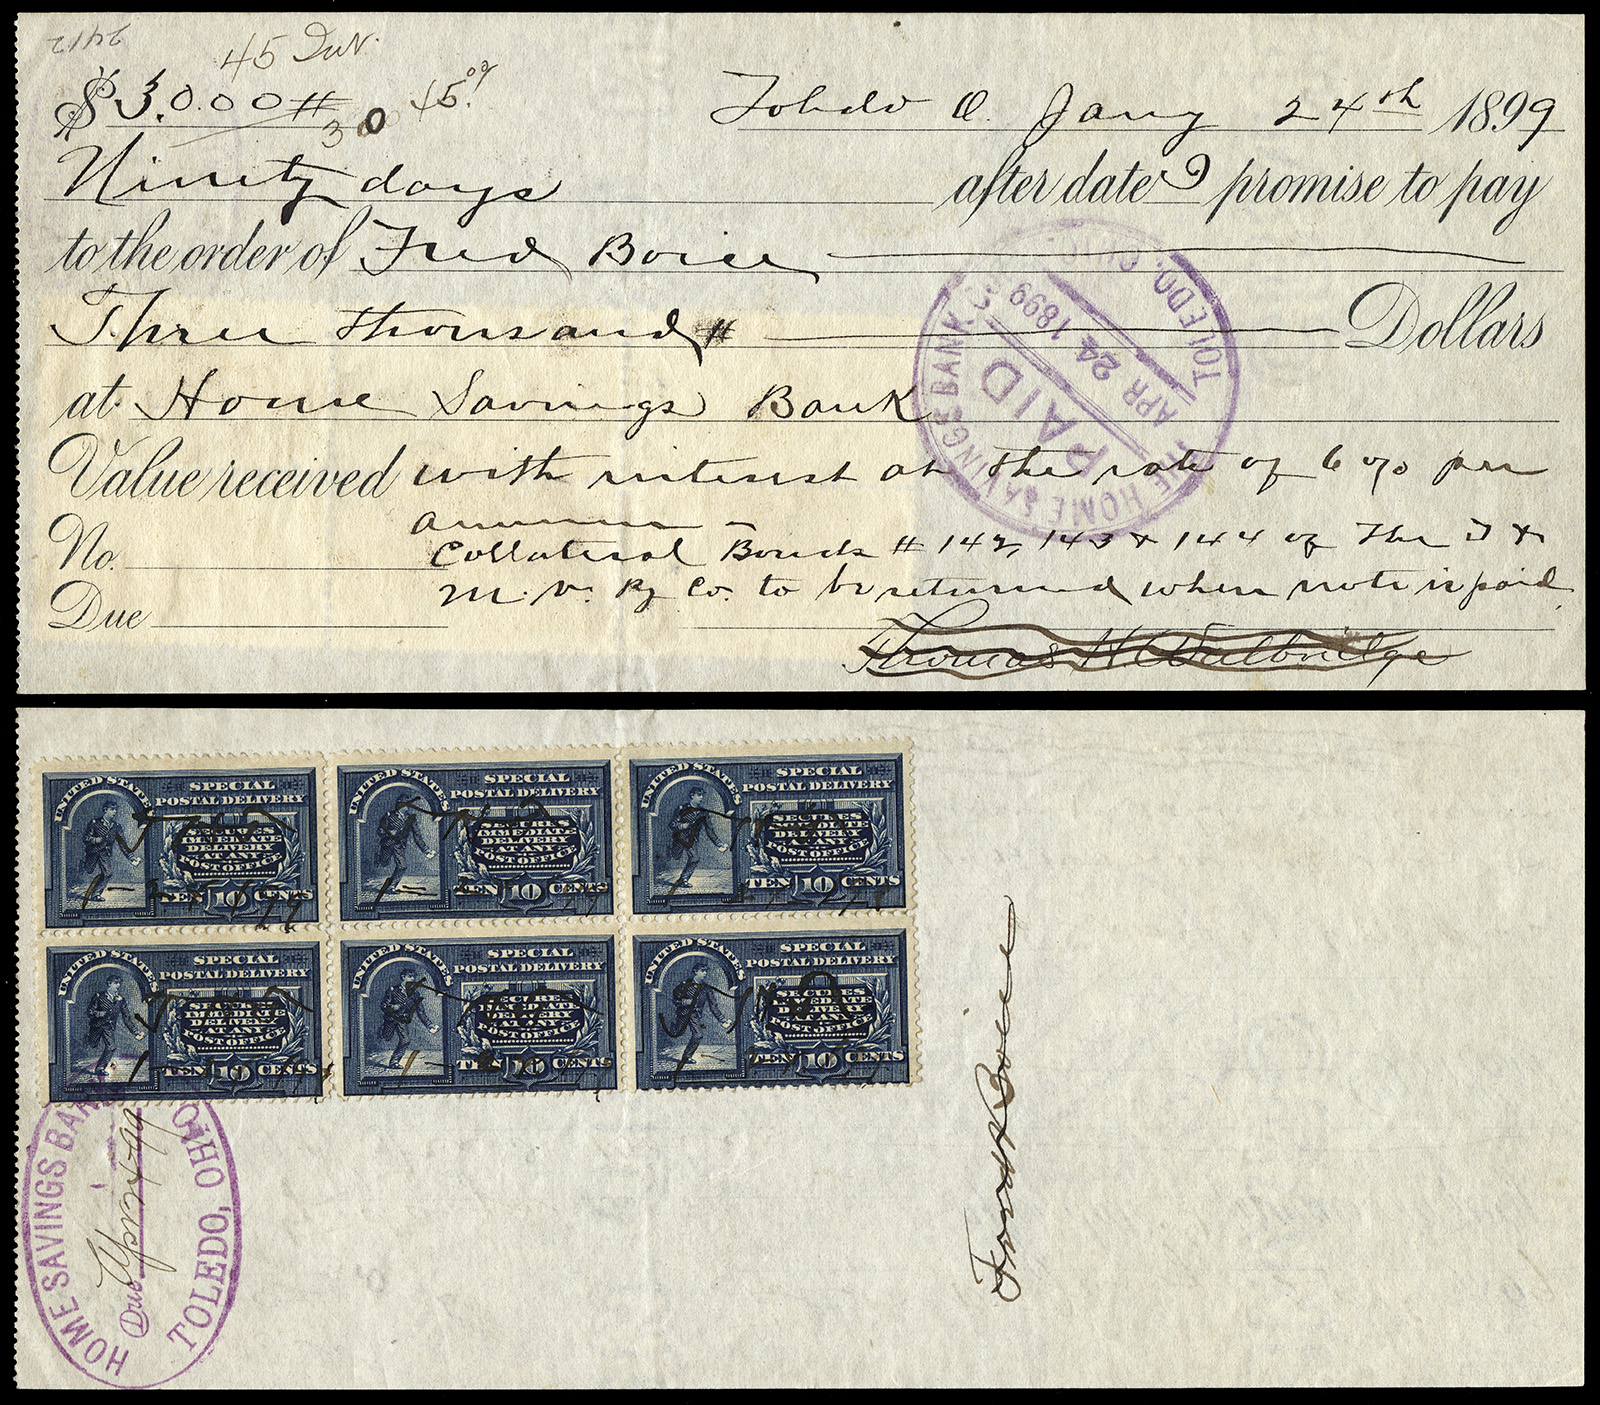 2412
45 Int.
$3.000# 30 45.00
Toledo O. Jany 24th 1899
Ninety days after date I promise to pay
to the order of Fred Boice
Three thousand # Dollars
at Home Savings Bank
Value received with interest at the rate of 6 % per
annum
No. Collateral Bonds # 142, 143 & 144 of The T &
M. V. Ry Co. to be returned when note is paid
Due
Thomas H Walbridge
THE HOME SAVINGS BANK CO.
TOLEDO, OHIO.
PAID
APR 24 1899
UNITED STATES SPECIAL POSTAL DELIVERY
SECURES IMMEDIATE DELIVERY AT ANY POST OFFICE
TEN 10 CENTS
UNITED STATES SPECIAL POSTAL DELIVERY
SECURES IMMEDIATE DELIVERY AT ANY POST OFFICE
TEN 10 CENTS
UNITED STATES SPECIAL POSTAL DELIVERY
SECURES IMMEDIATE DELIVERY AT ANY POST OFFICE
TEN 10 CENTS
UNITED STATES SPECIAL POSTAL DELIVERY
SECURES IMMEDIATE DELIVERY AT ANY POST OFFICE
TEN 10 CENTS
UNITED STATES SPECIAL POSTAL DELIVERY
SECURES IMMEDIATE DELIVERY AT ANY POST OFFICE
TEN 10 CENTS
UNITED STATES SPECIAL POSTAL DELIVERY
SECURES IMMEDIATE DELIVERY AT ANY POST OFFICE
TEN 10 CENTS
HOME SAVINGS BANK
Due Apr 24-99
TOLEDO, OHIO
Fred Boice